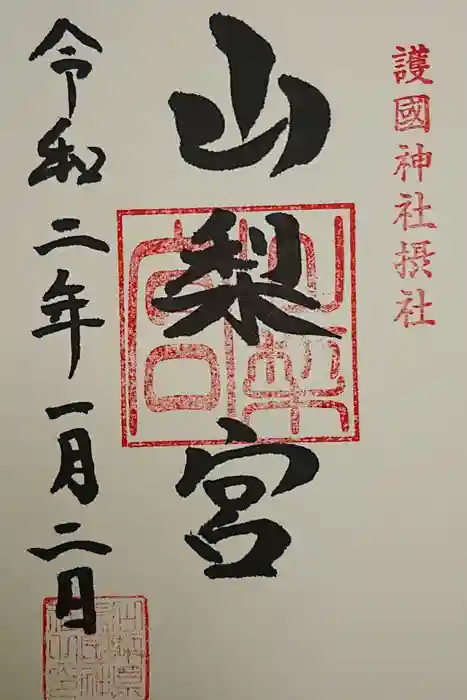 護國神社摂社
山梨宮
令和二年一月二日